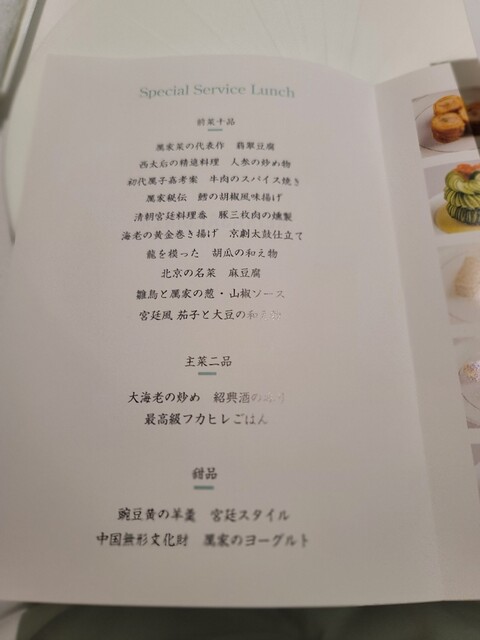 Special Service Lunch
前菜十品
厲家菜の代表作　翡翠豆腐
西太后の精進料理　人参の炒め物
初代厲子嘉考案　牛肉のスパイス焼き
厲家秘伝　鱈の胡椒風味揚げ
清朝宮廷料理番　豚三枚肉の燻製
海老の黄金巻き揚げ　京劇太鼓仕立て
龍を模った　胡瓜の和え物
北京の名菜　麻豆腐
雛鳥と厲家の葱・山椒ソース
宮廷風 茄子と大豆の和え物
主菜二品
大海老の炒め　紹興酒の
最高級フカヒレごはん
甜品
豌豆黄の羊羹　宮廷スタイル
中国無形文化財　厲家のヨーグルト